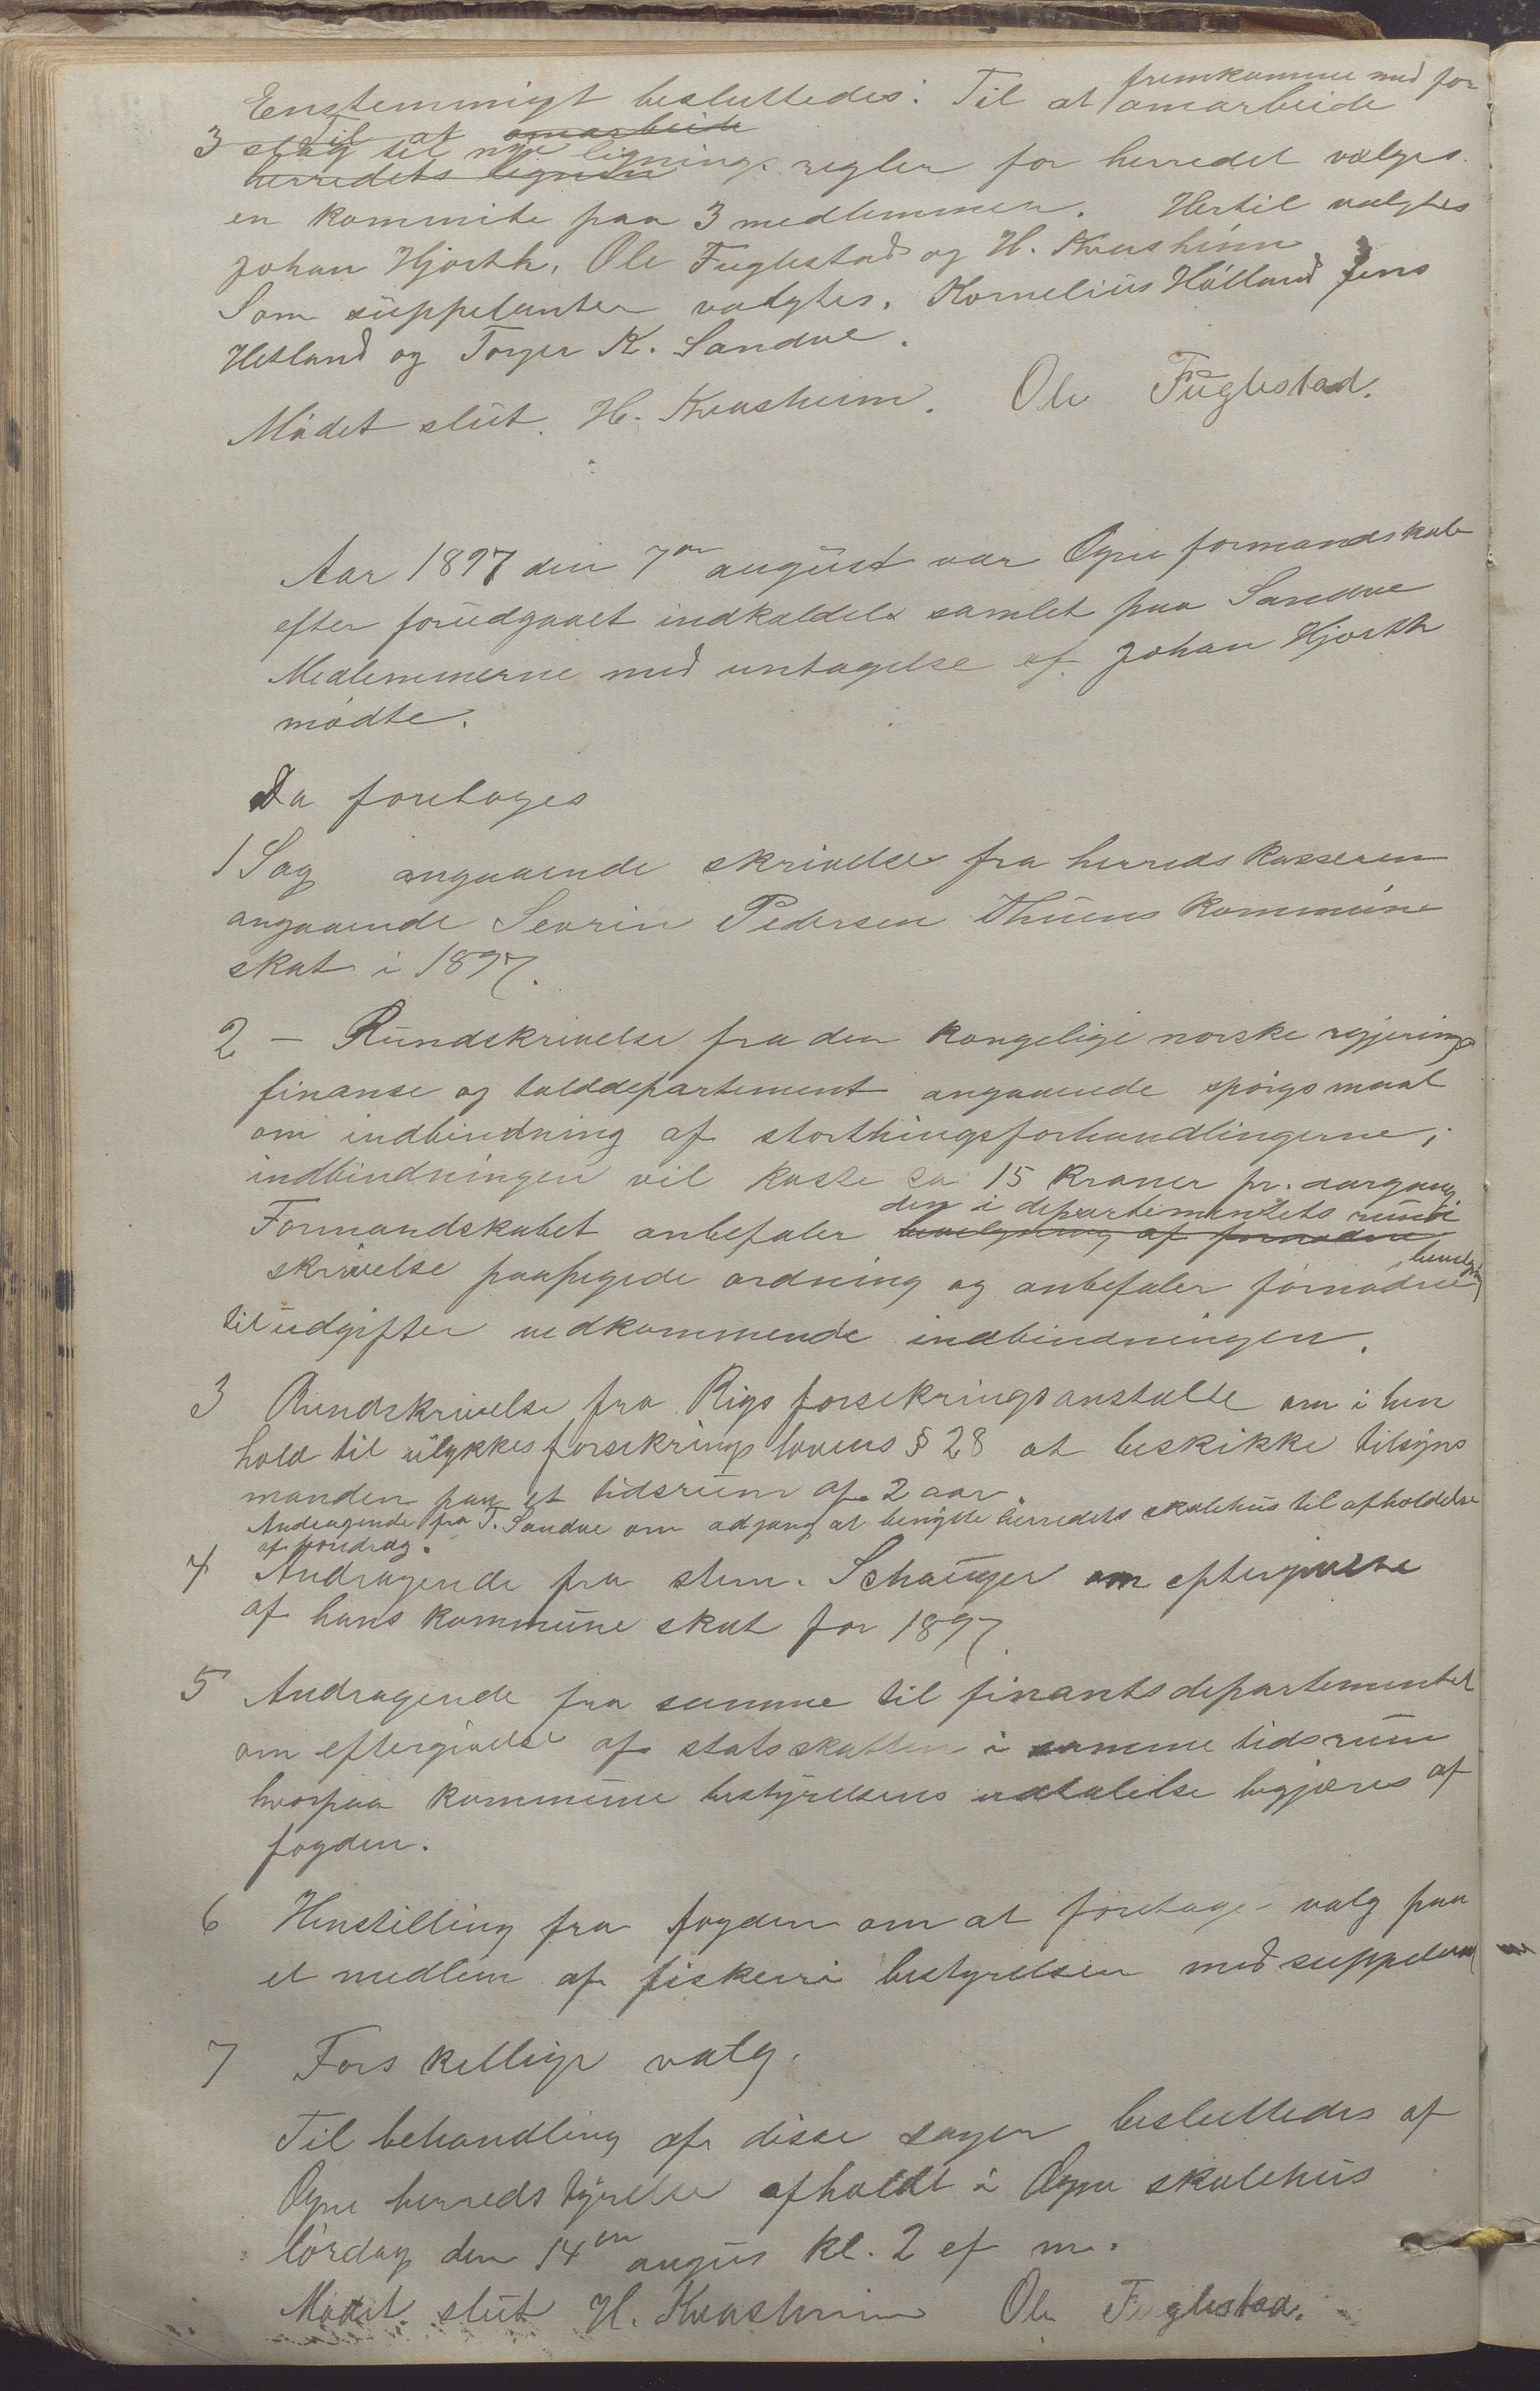 Enstemmigt besluttedes: Til at fremkomme med for
omarbeide
3 Til at omarbeide
slag til nye lignings regler for herredet vælges
herredets lignin
en kommite paa 3 medlemmer. Hertil valgtes
Johan Hjorth, Ole Fuglestad og H. Kvasheim
Som suppelanter valgtes. Kornelius Hålland Jens
Hetland og Torger K. Sandve.
Mödet slut. H. Kvasheim. Ole Fuglestad.
Aar 1897 den 7de august var Ogne formandskab
efter forudgaaet indkaldelse samlet paa Sandve
Medlemmerne med untagelse af Johan Hjorth
mödte.
Da foretoges
1 Sag angaaende skrivelse fra herreds kasseren
angaaende Sevrin Pedersen Thuens kommune
skat i 1897.
2 – Rundskrivelse fra den kongelige norske regjerings
finanse og tolddepartement angaaende spörgsmaal
om indbindning af storthingsforhandlingerne;
indbindningen vil koste ca 15 kroner pr. aargang
den i departementets rund
Formandskabet anbefaler bevilgning af fornødne
skrivelse paapegede ordning og anbefaler fornødne bevilgn
til udgifter vedkommende indbindningen.
3 Rundskrivelse fra Rigsforsekringsanstalte om i hen
hold til ulykkesforsekrings lovens § 28 at beskikke tilsyns
manden paa et tidsrum af 2 aar.
Andragende fra T. Sandve om adgang at benytte herredets skolehus til afholdelse
af foredrag.
4 Andragende fra stm. Schanger om eftergivelse
af hans kommune skat for 1897.
5 Andragende fra samme til finantsdepartementet
om eftergivelse af statsskatten i samme tidsrum
hvorpaa kommune bestyrelsens udtalelse begjæres af
fogden.
6 Henstilling fra fogden om at foretage valg paa
et medlem af fiskeri bestyrelsen med suppelant
7 Forskellige valg.
Til behandling af disse sager besluttedes af
Ogne herredstyrelse afholdt i Ogne skolehus
lördag den 14de augus kl. 2 ef m.
Mödet slut H. Kvasheim Ole Fuglestad.